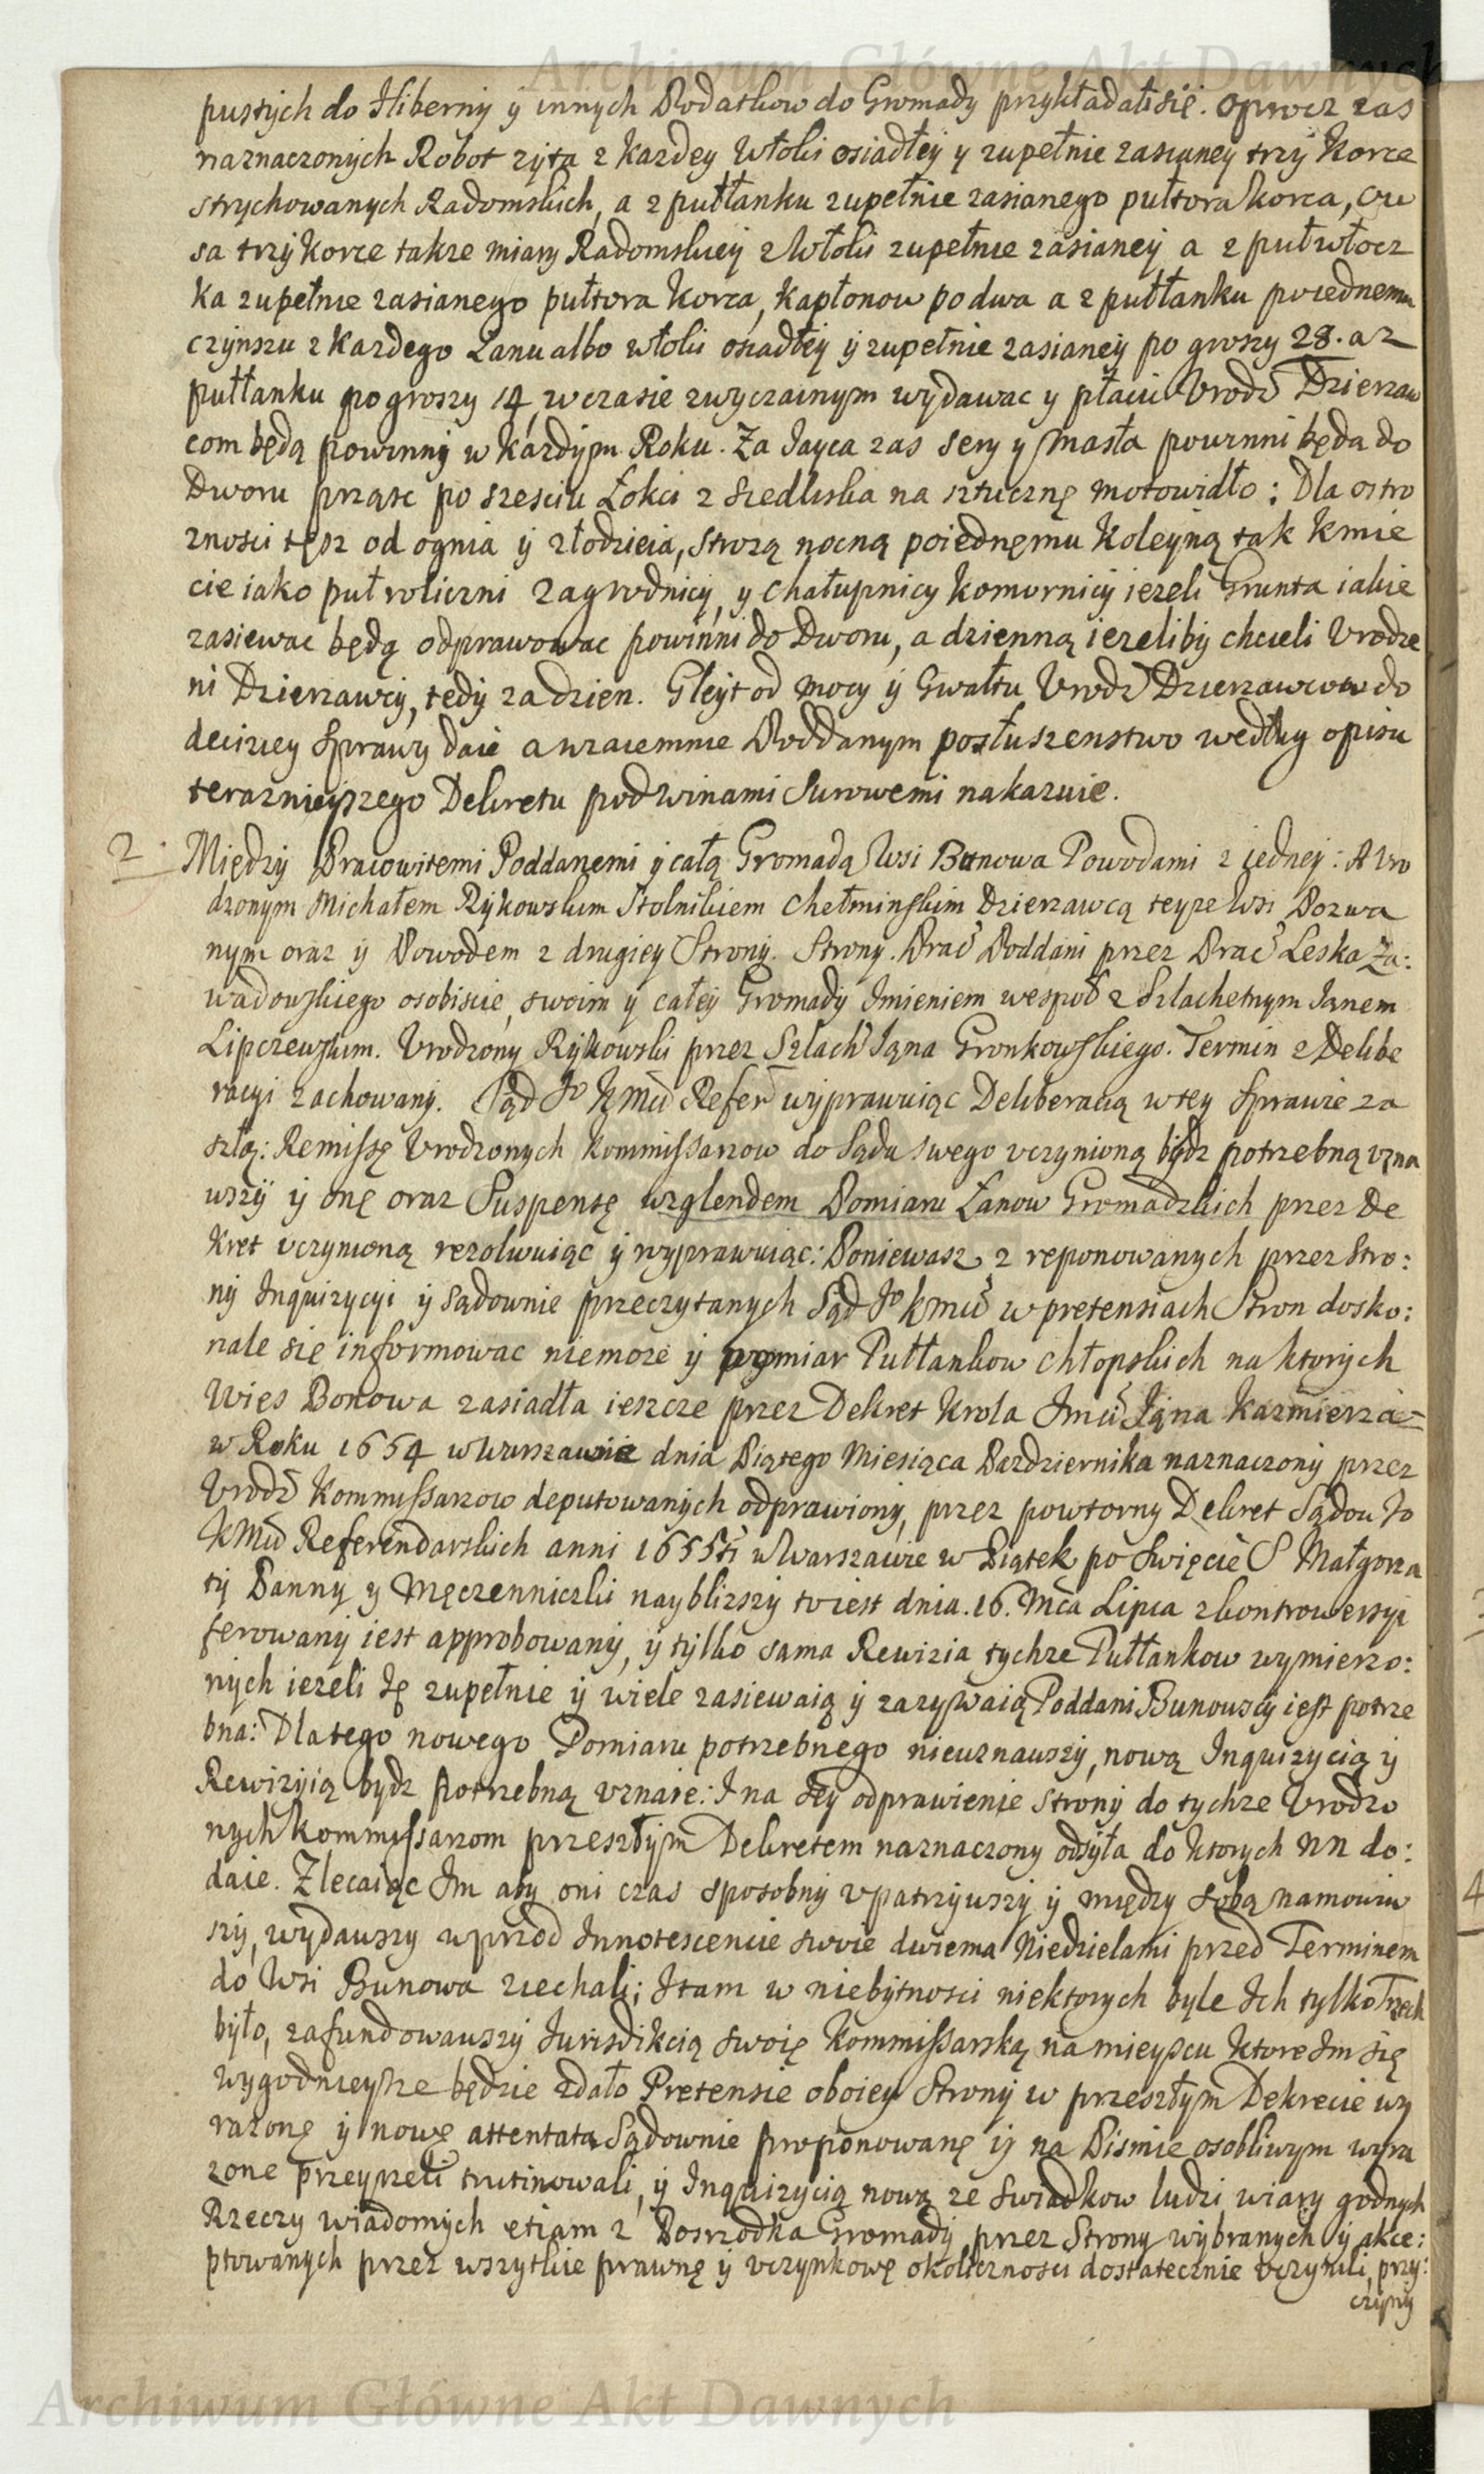 Archiwum Główne Akt Dawnych
pustych do Hiberny y innych Podatkow do Gromady przykładali się. oprocz zas
naznaczonych Robot zyta z kazdey Włoki osiadłey y zupełnie zasianey trzy korce
strychowanych Radomskich, a z pułłanku zupełnie zasianego pułtora korca, ow
sa trzy korce takze miary Radomskiey z Włoki zupełnie zasianey a z pułwłocz
ka zupełnie zasianego pułtora korca, kapłonow po dwa a z pułłanku poiednemu
czynszu z kazdego Łanu albo włoki osiadłey y zupełnie zasianey po groszy 28. a z
pułłanku po groszy 14 w czasie zwyczainym wydawac y płacic Vrodz Dzierzaw
com będą powinny w kazdym Roku. Za Jayca zas sery y Masła powinni będą do
Dworu prząsc po szesciu Łokci z Siedliska na sztucznę motowidło: Dla ostro
znosci tesz od ognia y złodzieia, strozą nocną poiednemu koleyną tak Kmie
cie iako puł roliczni Zagrodnicy, y Chałupnicy komornicy iezeli Grunta iakie
zasiewac będą odprawowac powinni do Dworu, a dzienną ieżeliby chcieli Vrodze
ni Dzierzawcy, tedy za dzien. Gleyt od mocy y Gwałtu Vrodz Dzierzawcow do
deciziey sprawy daie a wzaiemnie Poddanym posłuszenstwo według opisu
teraznieyszego Dekretu pod winami surowemi nakazuie.
2. Między Pracowitemi Poddanemi y całą Gromadą Wsi Bunowa Powodami z iedney: A Vro
dzonym Michałem Rykowskim Stolnikiem Chełminskim Dzierzawcą teyze Wsi Pozwa
nym oraz y Powodem z drugiey Strony. Strony. Prac Poddani przez Prac Leska Za:
wadowskiego osobiscie, swoim y całey Gromady Imieniem wespoł z Szlachetnym Janem
Lipczewskim. Vrodzony Rykowski przez Szlach Jąna Gronkowskiego. Termin z Delibe
racyi zachowany. Sąd Jo KMci Refer wyprawuiąc Deliberacią w tey sprawie za
szłą: Remissę Vrodzonych Kommissarzow do Sądu swego vczynioną bydz potrzebną vzna
wszy y onę oraz Suspensę wzglendem Pomiaru Łanow Gromadzkich przez De
kret vczynioną rezolwuiąc y wyprawuiąc: Poniewasz z reponowanych przez Stro:
ny Inquizycyi y sądownie przeczytanych Sąd Jo kmci w pretensiach Stron dosko:
nale się informowac niemoze y pomiar Pułłankow chłopskich na ktorych
Wies Bonowa zasiadła ieszcze przez Dekret Krola Jmci Jąna Kazmierza
w Roku 1654 w Warszawie dnia Piątego Miesiąca Pazdziernika naznaczony przez
Vrodz Kommissarzow deputowanych odprawiony, przez powtorny Dekret Sądow Jo
KMci Referendarskich anni 1655ti w Warszawie w Piątek po Swięcie S Małgorza
ty Panny y Męczenniczki nayblizszy to iest dnia. 16. Mca Lipca z kontrowersyi
ferowany iest approbowany, y tylko sama Rewizia tychze Pułłankow wymierzo:
nych iezeli Ję zupełnie y wiele zasiewaią y zazywaią Poddani Bunowscy iest potrze
bna: Dlatego nowego Pomiaru potrzebnego nieuznawszy, nową Inquizycią y
Rewizyią bydz potrzebną vznaie: I na tey odprawienie Strony do tychze Vrodzo
nych kommissarzom przeszłym Dekretem naznaczony odsyła do ktorych NN do:
daie. Zlecaiąc Im aby oni czas sposobny vpatrzywszy y między sobą namowiw
szy, wydawszy wprzod Innotescencie swoie dwiema Niedzielami przed Terminem
do Wsi Bunowa ziechali; I tam w niebytnosci niektorych byle Ich tylko Trzech
było, zafundowawszy Jurisdikcią swoię Kommissarską na mieyscu ktore Im się
wygodnieysze będzie zdało Pretensie oboiey Strony w przeszłym Dekrecie wy
razonę y nowę attentata Sądownie proponowanę y na Pismie osobliwym wyra
zone przeyzreli trutinowali, y Inquizycią nową ze swiadkow ludzi wiary godnych
Rzeczy wiadomych etiam z Posrzodka Gromady przez Strony wybranych y akce:
ptowanych przez wszytkie prawnę y vczynkowę okolicznosci dostatecznie vczynili, przy:
czyny
4
Archiwum Główne Akt Dawnych